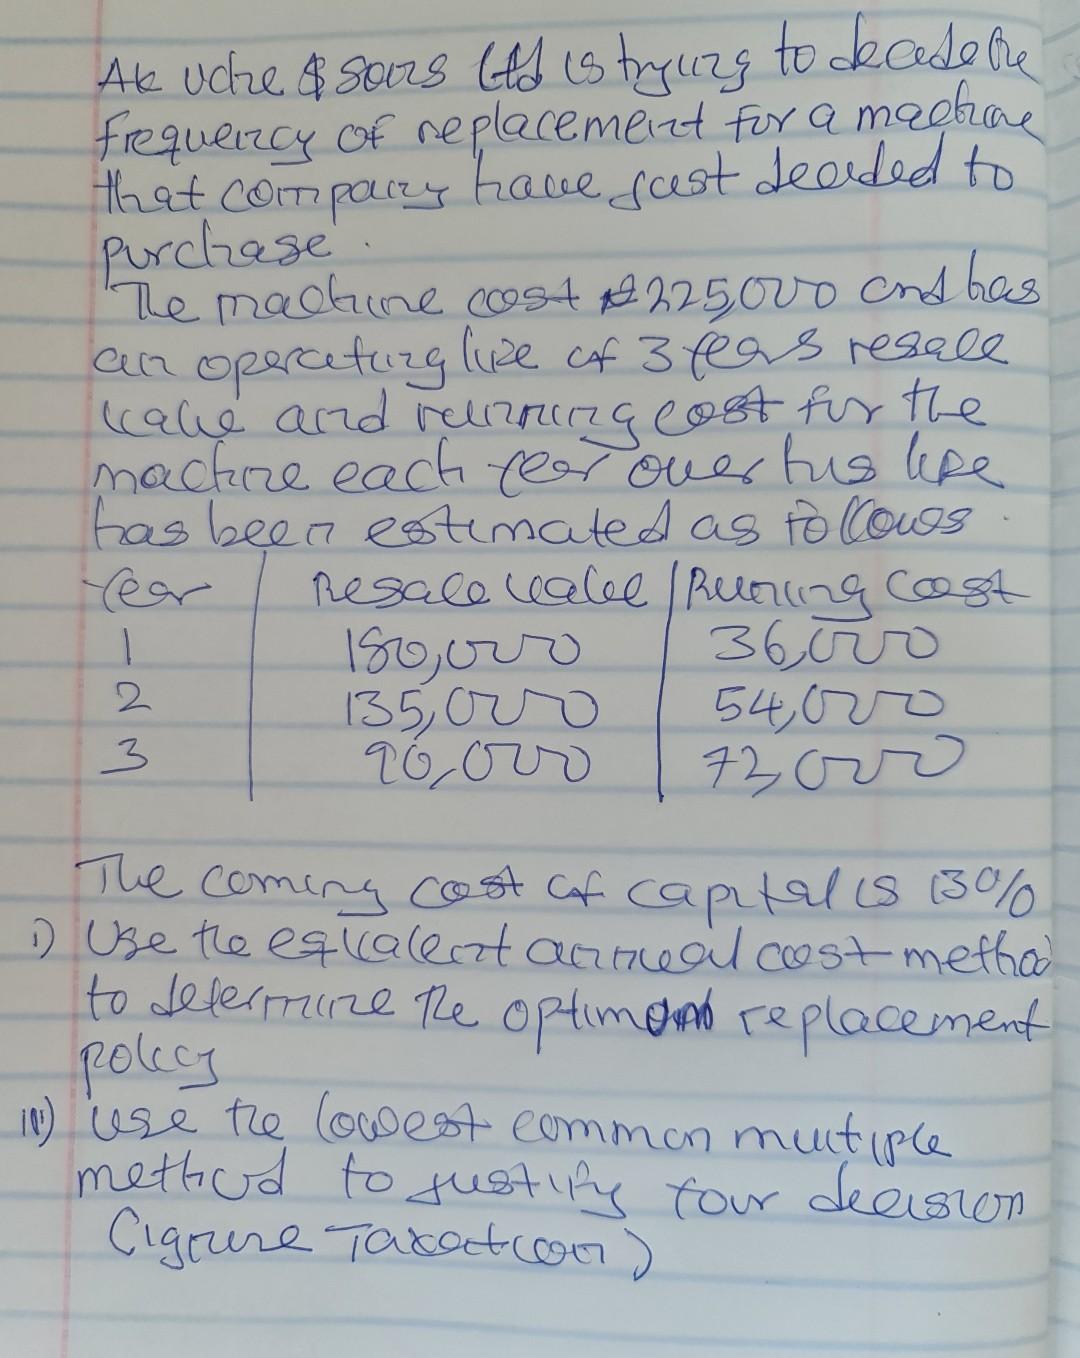 Ak uche & sons Ltd is trying to decide the
frequency of replacement for a machine
that company have just decided to
purchase.
The machine cost ₦225,000 and has
an operating life of 3 years resale
value and running cost for the
machine each year over his life
has been estimated as follows
Year | Resale value | Running cost
1 180,000 36,000
2 135,000 54,000
3 90,000 72,000
The coming cost of capital is 13%
i) Use the eqivalent annual cost method
to determine the optimum replacement
policy
ii) use the lowest common multiple
method to justify your decision
(ignore Taxation)